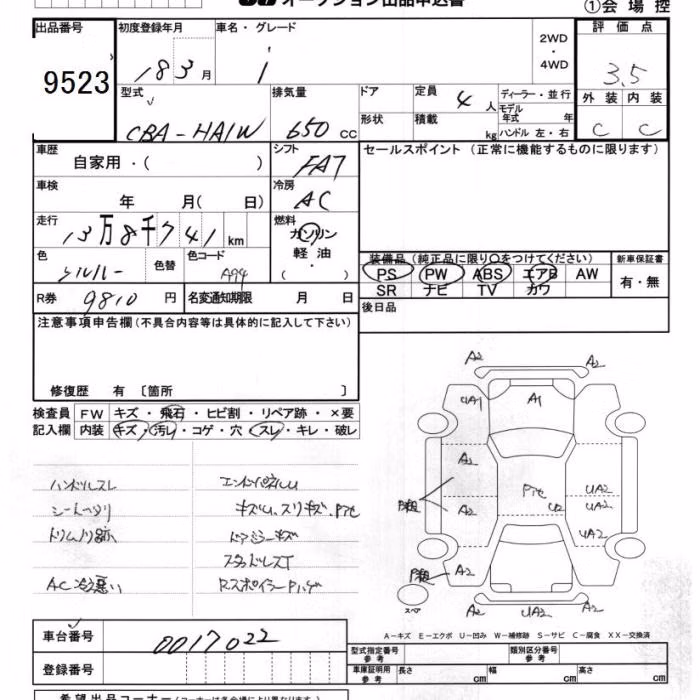 オークション出品申込書
①会場控
出品番号
9523
初度登録年月
18 3 月
車名・グレード
i
2WD
・
4WD
評価点
3.5
型式
CBA-HA1W
排気量
650 cc
ドア
形状
定員
4 人
積載
kg
ディーラー・並行
モデル
年式 年
ハンドル 左・右
外装 内装
C C
車歴
自家用・( )
シフト
FAT
セールスポイント (正常に機能するものに限ります)
車検
年 月( 日)
冷房
AC
走行
13万8千741 km
燃料
ガソリン
軽油
( ・ )
色
シルバー
色替
色コード
A94
装備品 (純正品に限り○をつけてください)
新車保証書
PS PW ABS エアB AW
SR ナビ TV カワ
有・無
R券 9810 円
名変通知期限 月 日
後日品
注意事項申告欄(不具合内容等は具体的に記入して下さい)
修復歴 有 〔箇所 〕
検査員
記入欄
FW キズ・飛石・ヒビ割・リペア跡・×要
内装 キズ・汚レ・コゲ・穴・スレ・キレ・破レ
ハンドルスレ
エンドパネルU
シートヘタリ
キズU、スリキズ、Pアセ
ドリムノリ跡
ドアミラーキズ
スタッドレスT
AC冷悪い
RスポイラーPハゲ
A2 A2
UA1 A1
A2
P粗 A2
Pアセ U2 UA2
UA2
UA2
P粗 A2 A2
スペア
A2 UA2 A2
A-キズ E-エクボ U-凹み W-補修跡 S-サビ C-腐食 XX-交換済
車台番号
0017022
登録番号
型式指定番号
参考
類別区分番号
参考
車庫証明用
参考
長さ cm 幅 cm 高さ cm
希望出品コーナー(コーナーは各会場により異なります。)